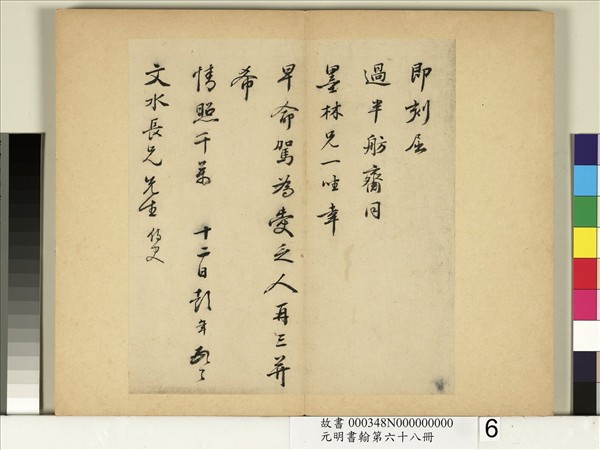 即刻屈
過半舫齋同
墨林兄一坐幸
早命駕為愛乏人再三并
希
情照千萬 十二日彭年頓首
文水長兄先生侍史
故書 000348N000000000
元明書翰第六十八冊
6